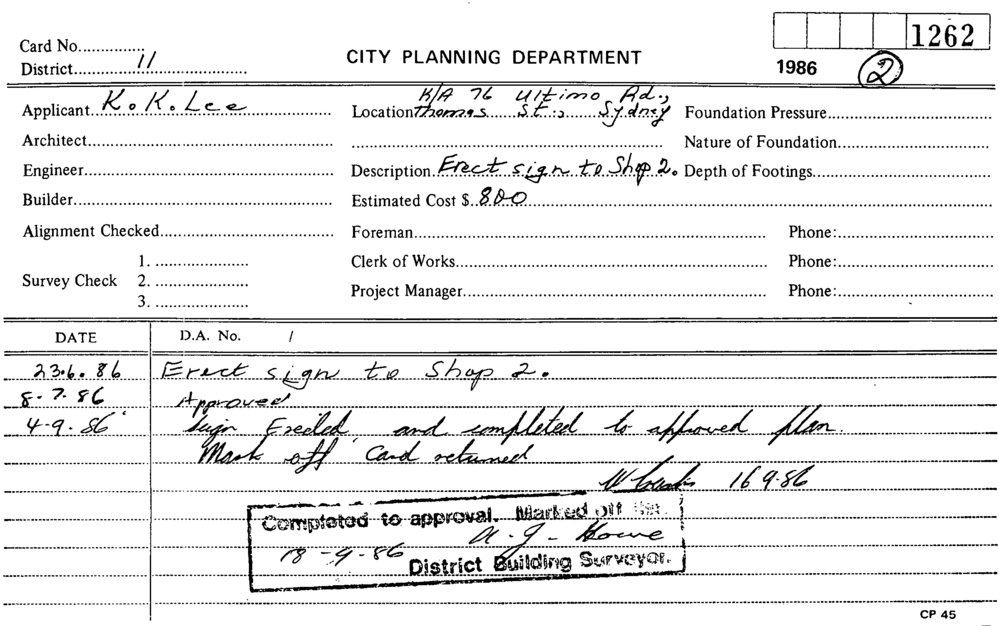 1262
Card No...............
District 11
CITY PLANNING DEPARTMENT
1986
2
Applicant K.K.Lee
Location K/A 76 Ultimo Rd.,
Thomas St., Sydney
Foundation Pressure
Architect
Nature of Foundation
Engineer
Description Erect sign to Shop 2.
Depth of Footings
Builder
Estimated Cost $ 800
Alignment Checked
Foreman
Phone:
Survey Check
1.
2.
3.
Clerk of Works
Phone:
Project Manager
Phone:
DATE D.A. No. /
23.6.86 Erect sign to Shop 2.
8-7.86 Approved
4-9.86 Sign Erected and completed to approved plan.
Mark off Card returned
16 9.86
Completed to approval. Marked off
A. J. Howe
18-9-86
District Building Surveyor.
CP 45